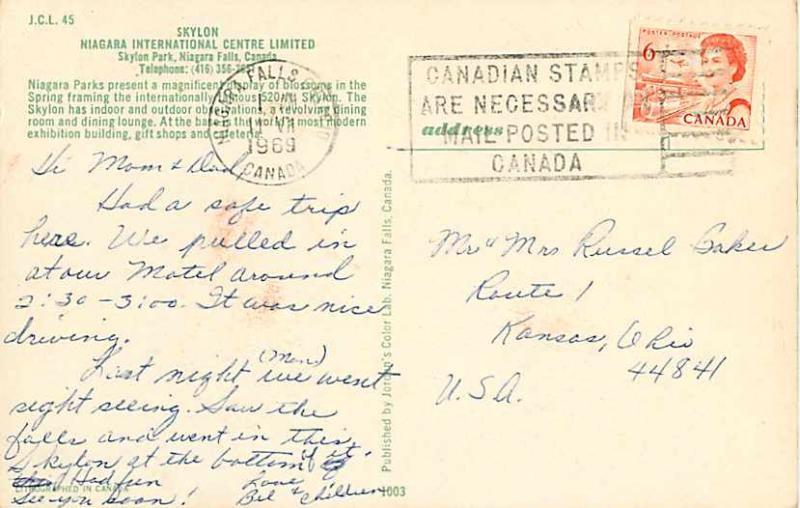 J.C.L. 45
SKYLON
NIAGARA INTERNATIONAL CENTRE LIMITED
Skylon Park, Niagara Falls, Canada
Telephone: (416) 356-
Niagara Parks present a magnificent display of blossoms in the
Spring framing the internationally famous 520 ft. Skylon. The
Skylon has indoor and outdoor observations, a revolving dining
room and dining lounge. At the base the world's most modern
exhibition building, gift shops and cafeteria.
NIAGARA FALLS
VII
1969
CANADA
CANADIAN STAMPS
ARE NECESSARY ON
MAIL POSTED IN
CANADA
POSTES POSTAGE
6
CANADA
address
Hi Mom & Dad,
Had a safe trip
here. We pulled in
at our Motel around
2:30 - 3:00. It was nice
driving.
Last night (Mon) we went
sight seeing. Saw the
falls and went in this
Skylon, at the bottom of it.
Had fun
See you soon! Love
& Children
Mr & Mrs Russel Baker
Route 1
Kansas, Ohio
44841
U.S.A.
Published by Jordon's Color Lab. Niagara Falls, Canada.
LITHOGRAPHED IN CANADA
1003